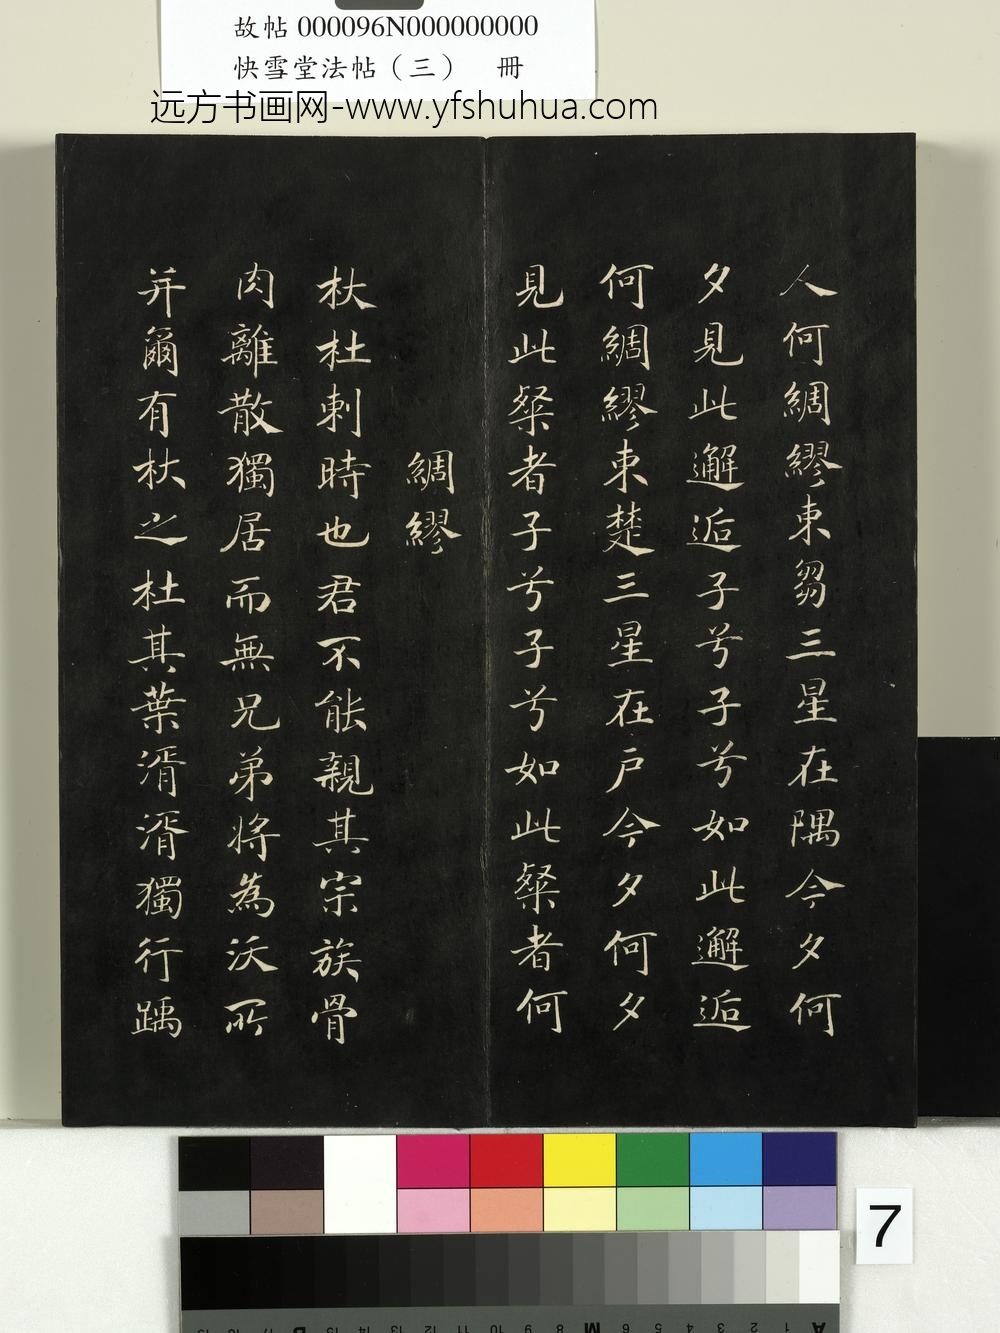 故帖 000096N000000000
快雪堂法帖（三） 冊
远方书画网-www.yfshuhua.com
人何綢繆束芻三星在隅今夕何
夕見此邂逅子兮子兮如此邂逅
何綢繆束楚三星在戶今夕何夕
見此粲者子兮子兮如此粲者何
綢繆
杕杜刺時也君不能親其宗族骨
肉離散獨居而無兄弟將為沃所
并爾有杕之杜其葉湑湑獨行踽
7